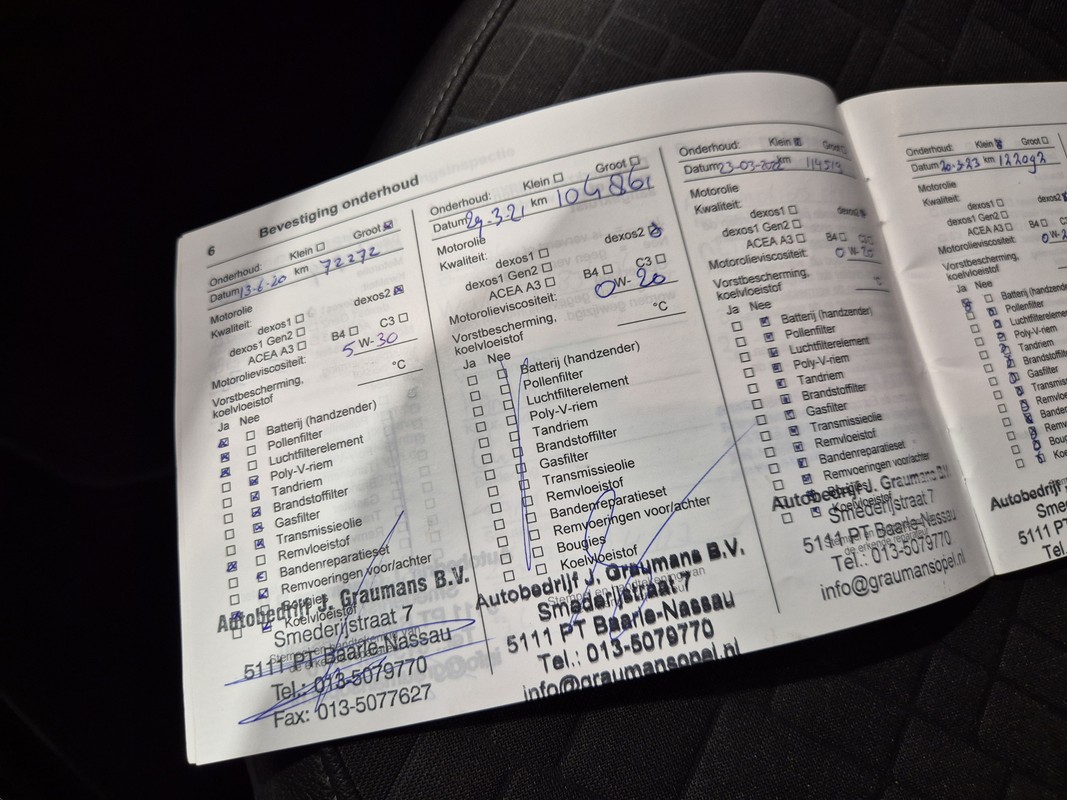 6 Bevestiging onderhoud
Onderhoud: Klein ☐ Groot ☒
Datum 13-6-20 km 72272
Motorolie
Kwaliteit: dexos1 ☐ dexos2 ☒
dexos1 Gen2 ☐
ACEA A3 ☐ B4 ☐ C3 ☐
Motorolieviscositeit: 5 W- 30
Vorstbescherming,
koelvloeistof °C
Ja Nee
Batterij (handzender)
Pollenfilter
Luchtfilterelement
Poly-V-riem
Tandriem
Brandstoffilter
Gasfilter
Transmissieolie
Remvloeistof
Bandenreparatieset
Remvoeringen voor/achter
Bougies
Koelvloeistof
Autobedrijf J. Graumans B.V.
Smederijstraat 7
5111 PT Baarle-Nassau
Tel.: 013-5079770
Fax: 013-5077627
Onderhoud: Klein ☐ Groot ☐
Datum 29-3-21 km 104861
Motorolie
Kwaliteit: dexos1 ☐ dexos2 ☒
dexos1 Gen2 ☐
ACEA A3 ☐ B4 ☐ C3 ☐
Motorolieviscositeit: 0 W- 20
Vorstbescherming,
koelvloeistof °C
Ja Nee
Batterij (handzender)
Pollenfilter
Luchtfilterelement
Poly-V-riem
Tandriem
Brandstoffilter
Gasfilter
Transmissieolie
Remvloeistof
Bandenreparatieset
Remvoeringen voor/achter
Bougies
Koelvloeistof
Autobedrijf J. Graumans B.V.
Smederijstraat 7
5111 PT Baarle-Nassau
Tel.: 013-5079770
info@graumansopel.nl
Onderhoud: Klein ☒ Groot ☐
Datum 23-03-2022 km
Motorolie
Kwaliteit: dexos1 ☐ dexos2 ☒
dexos1 Gen2 ☐
ACEA A3 ☐ B4 ☐ C3 ☐
Motorolieviscositeit: 0 W- 20
Vorstbescherming,
koelvloeistof °C
Ja Nee
Batterij (handzender)
Pollenfilter
Luchtfilterelement
Poly-V-riem
Tandriem
Brandstoffilter
Gasfilter
Transmissieolie
Remvloeistof
Bandenreparatieset
Remvoeringen voor/achter
Bougies
Koelvloeistof
Autobedrijf J. Graumans B.V.
Smederijstraat 7
5111 PT Baarle-Nassau
Tel.: 013-5079770
info@graumansopel.nl
Onderhoud: Klein ☒ Groot ☐
Datum 20-3-23 km 122092
Motorolie
Kwaliteit: dexos1 ☐ dexos2
dexos1 Gen2 ☐
ACEA A3 ☐ B4 ☐
Motorolieviscositeit: 0 W-
Vorstbescherming,
koelvloeistof
Ja Nee
Batterij (handzend
Pollenfilter
Luchtfilterelement
Poly-V-riem
Tandriem
Brandstoffilter
Gasfilter
Transmis
Remvloei
Banden
Remvo
Boug
Koe
Autobedrijf
Sme
5111 PT
Tel.